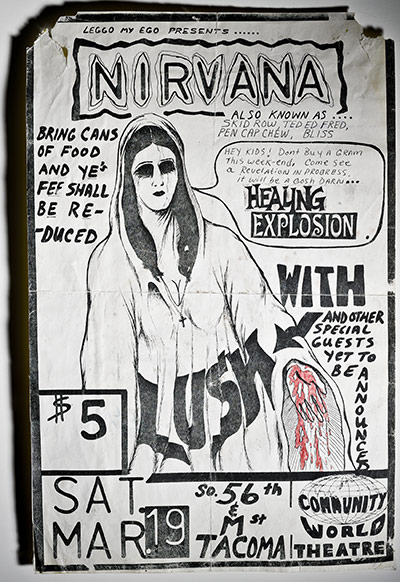 LEGGO MY EGO PRESENTS ......
NIRVANA
ALSO KNOWN AS ....
SKID ROW, TED ED FRED,
PEN CAP CHEW, BLISS
BRING CANS
OF FOOD
AND YE'S
FEE SHALL
BE RE-
-DUCED
HEY KIDS! DONT BUY A GRAM
THIS WEEK-END, COME SEE
A REVELATION IN PROGRESS.
IT WILL BE A GOSH DARN...
HEALING
EXPLOSION
.
WITH
LUSH
AND OTHER
SPECIAL
GUESTS
YET TO
BE ANNOUNCED
$5
SAT.
MAR. 19
So. 56th
&
M st
TACOMA
COMMUNITY
WORLD
THEATRE